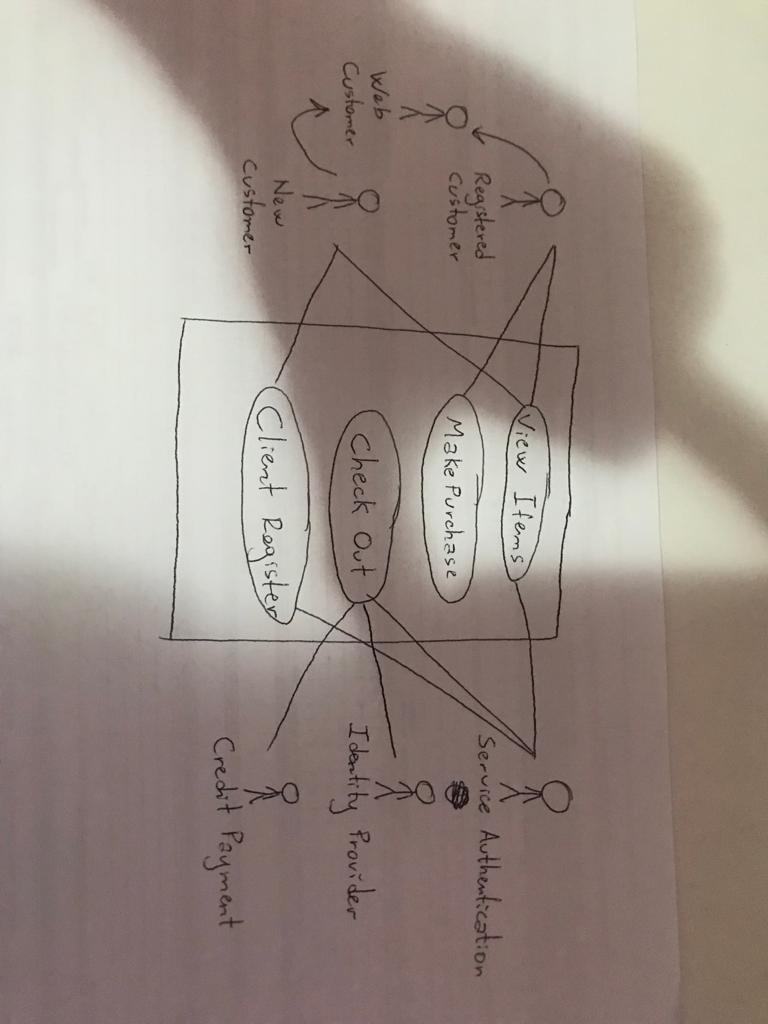 Registered
Customer
Web
Customer
New
Customer
View Items
Make Purchase
Check Out
Client Register
Service Authentication
Identity Provider
Credit Payment